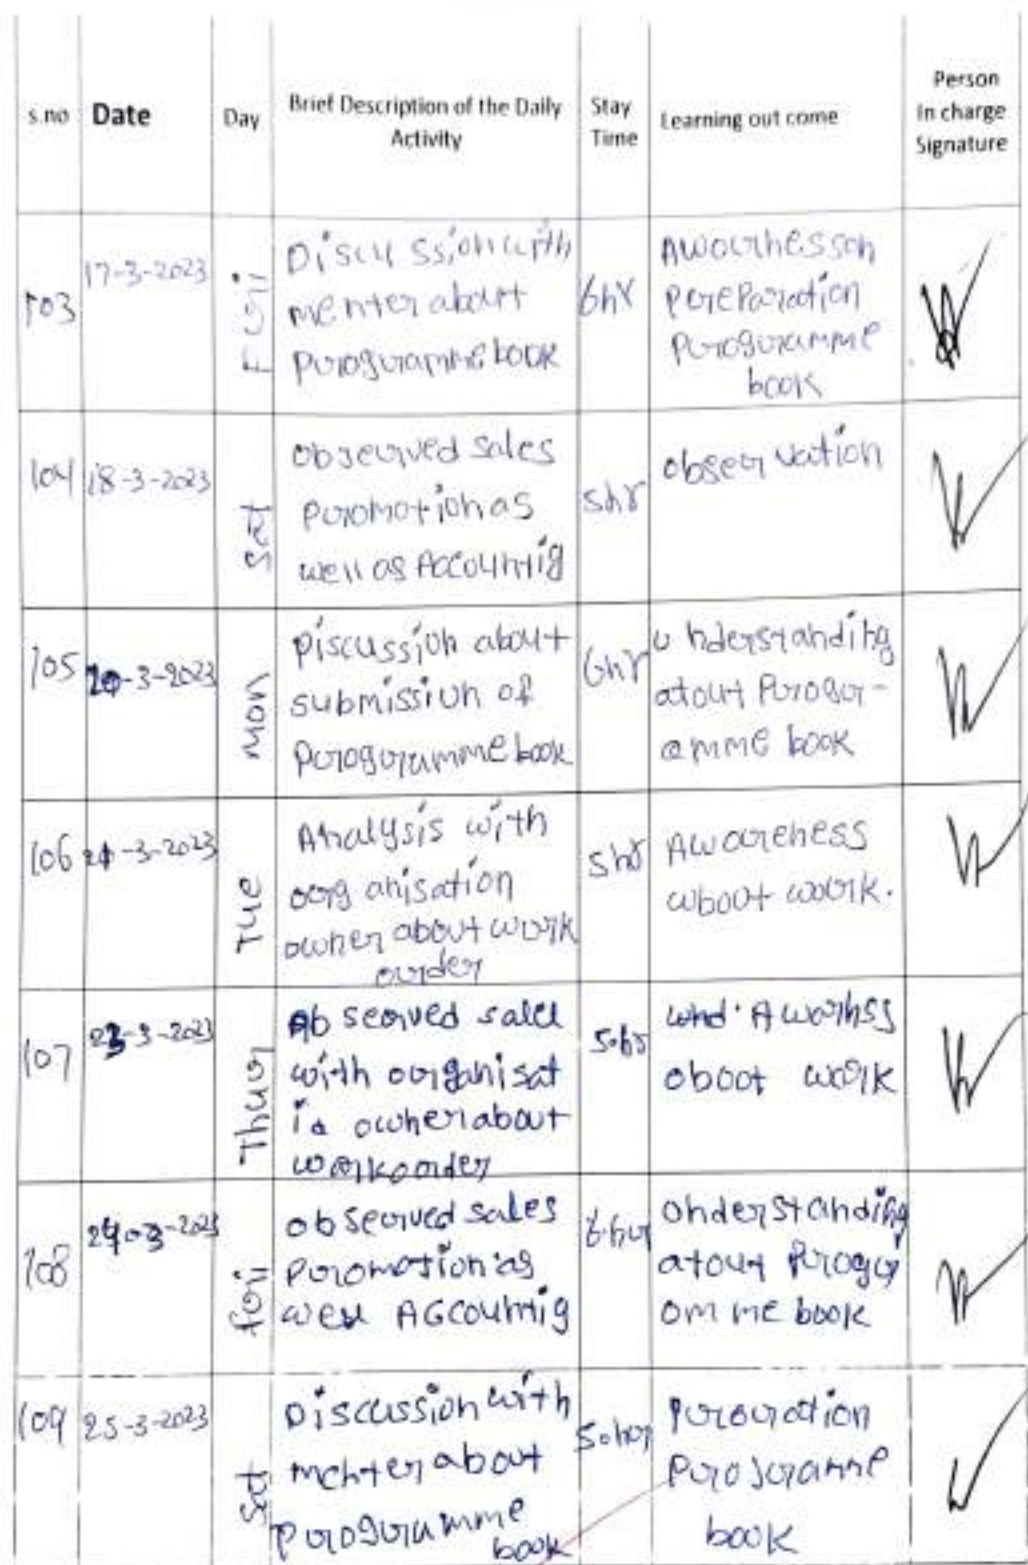 s.no Date Day Brief Description of the Daily Activity Stay Time Learning out come Person In charge Signature
103 17-3-2023 Fri
Discussion with
menter about
programme book
6hr
Awarness on
preparation
programme
book
104 18-3-2023 sat
observed sales
promotion as
well as Accountig
5hr
observation
105 20-3-2023 Mon
Discussion about
submission of
programme book
6hr
understanding
atout progr-
amme book
106 21-3-2023 Tue
Analysis with
organisation
owner about work
order
5hr
Awareness
about work.
107 23-3-2023 Thur
observed sales
with organisat
owner about
work order
5.hr
Awarnss
oboot work
108 24-03-2023 fri
observed sales
promotion as
well AGcountig
6.hr
understanding
atout progr
amme book
109 25-3-2023 sat
Discussion with
menter about
programme
book
5.hr
programme
book